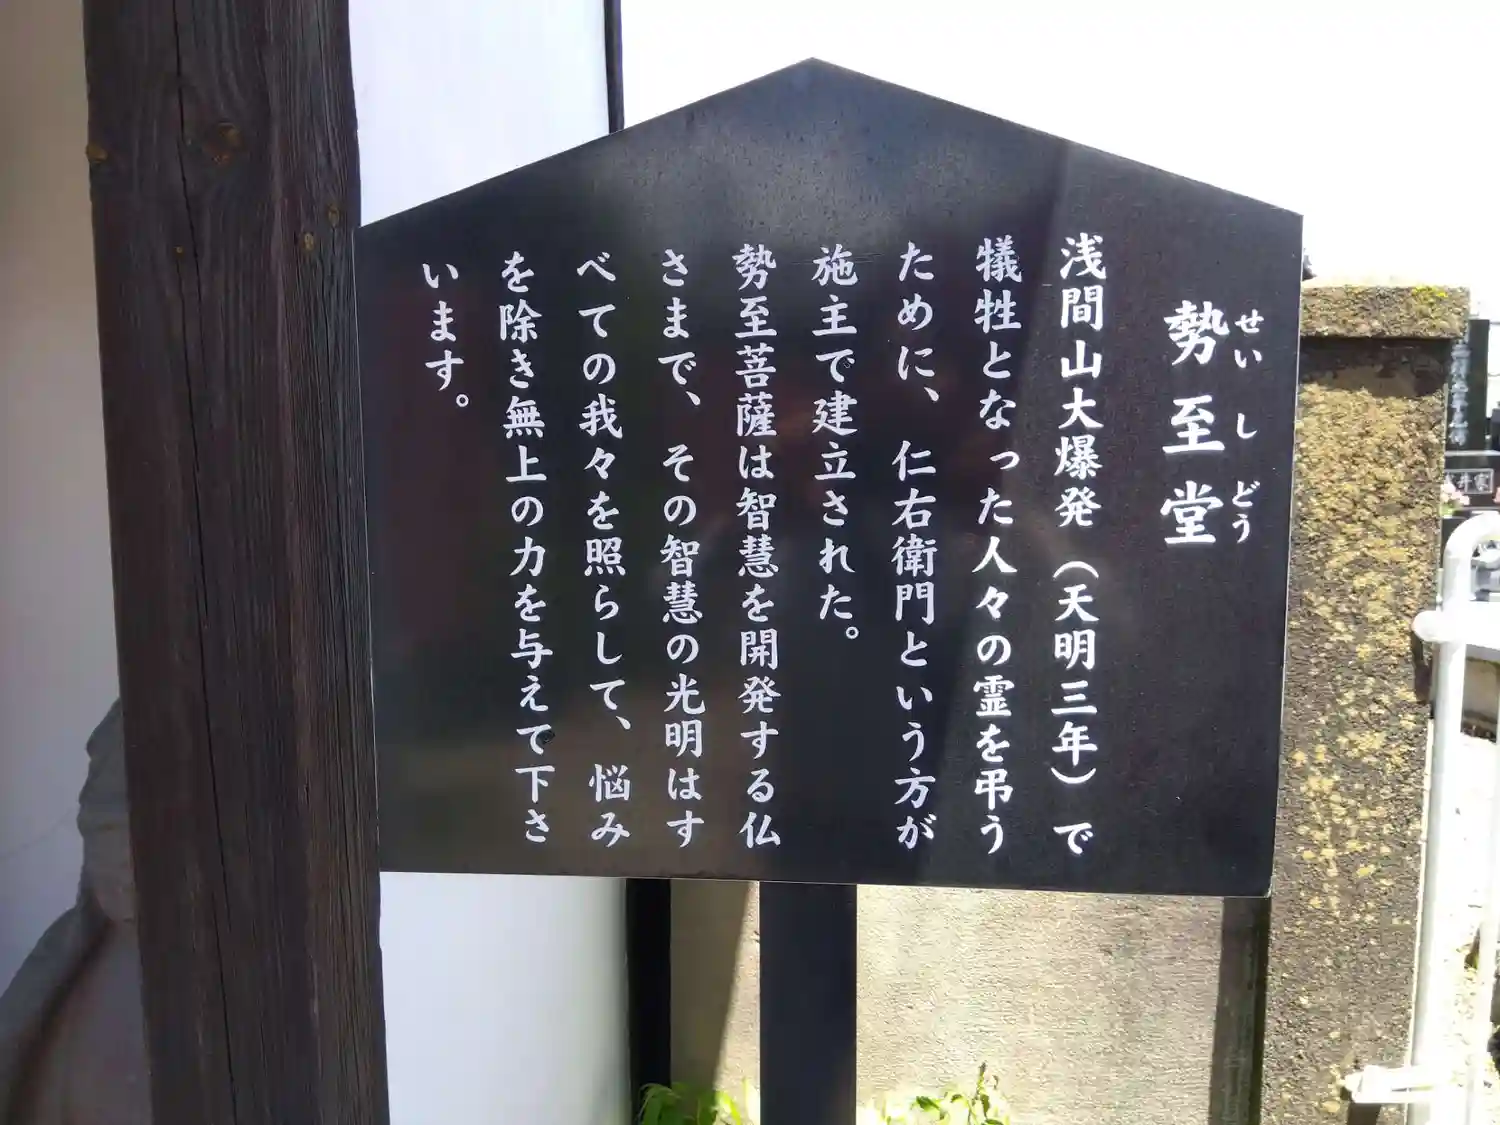 勢至堂
せいしどう
浅間山大爆発（天明三年）で
犠牲となった人々の霊を弔う
ために、仁右衛門という方が
施主で建立された。
勢至菩薩は智慧を開発する仏
さまで、その智慧の光明はす
べての我々を照らして、悩み
を除き無上の力を与えて下さ
います。